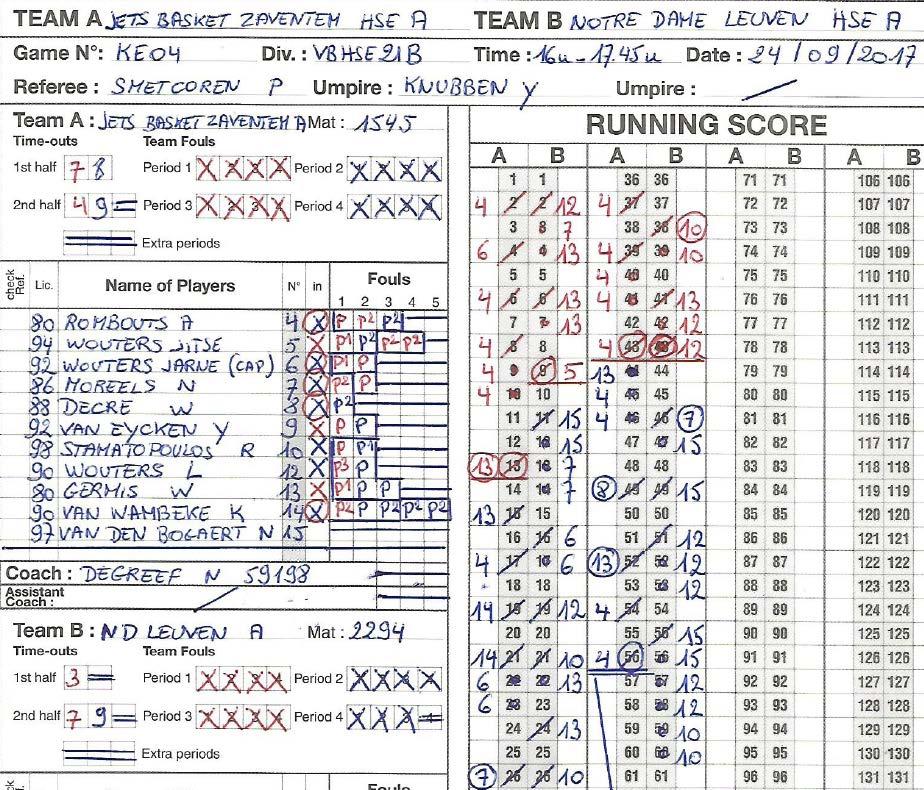 TEAM A JETS BASKET ZAVENTEM HSE A TEAM B NOTRE DAME LEUVEN HSE A
Game N°: KE04 Div.: VBHSE21B Time: 16u-17.45u Date: 24/09/2017
Referee: SMETCOREN P Umpire: KNUBBEN Y Umpire:
Team A: JETS BASKET ZAVENTEM A Mat: 1545
Time-outs Team Fouls
1st half 7 8 Period 1 Period 2
2nd half 4 9 Period 3 Period 4
Extra periods
check Ref. Lic. Name of Players N° in Fouls
1 2 3 4 5
80 ROMBOUTS A 4 X P P2 P2
94 WOUTERS JITSE 5 X P1 P P2 P2
92 WOUTERS JARNE (CAP) 6 X P1 P
86 MOREELS N 7 X P2 P
88 DECRE W 8 X P2
92 VAN EYCKEN Y 9 X P P
98 STAMATOPOULOS R 10 X P P1
90 WOUTERS L 12 X P3 P
80 GERMIS W 13 X P1 P P
90 VAN WAMBEKE K 14 X P2 P P2 P2 P2
97 VAN DEN BOGAERT N 15
Coach: DEGREEF N 59198
Assistant Coach:
Team B: ND LEUVEN A Mat: 2294
Time-outs Team Fouls
1st half 3 Period 1 Period 2
2nd half 7 9 Period 3 Period 4
Extra periods
Fouls
RUNNING SCORE
A B A B A B A B
1 1 36 36 71 71 106 106
4 2 2 12 4 37 37 72 72 107 107
3 3 7 38 38 10 73 73 108 108
6 4 4 13 4 39 39 10 74 74 109 109
5 5 4 40 40 75 75 110 110
4 6 6 13 4 41 41 13 76 76 111 111
7 7 13 42 42 12 77 77 112 112
4 8 8 4 43 43 12 78 78 113 113
4 9 9 5 13 44 44 79 79 114 114
4 10 10 4 45 45 80 80 115 115
11 11 15 4 46 46 7 81 81 116 116
12 12 15 47 47 15 82 82 117 117
13 13 13 7 48 48 83 83 118 118
14 14 7 8 49 49 15 84 84 119 119
13 15 15 50 50 85 85 120 120
16 16 6 51 51 12 86 86 121 121
4 17 17 6 13 52 52 12 87 87 122 122
18 18 53 53 12 88 88 123 123
14 19 19 12 4 54 54 89 89 124 124
20 20 55 55 15 90 90 125 125
14 21 21 10 4 56 56 15 91 91 126 126
6 22 22 13 57 57 12 92 92 127 127
6 23 23 58 58 12 93 93 128 128
24 24 13 59 59 10 94 94 129 129
25 25 60 60 10 95 95 130 130
7 26 26 10 61 61 96 96 131 131